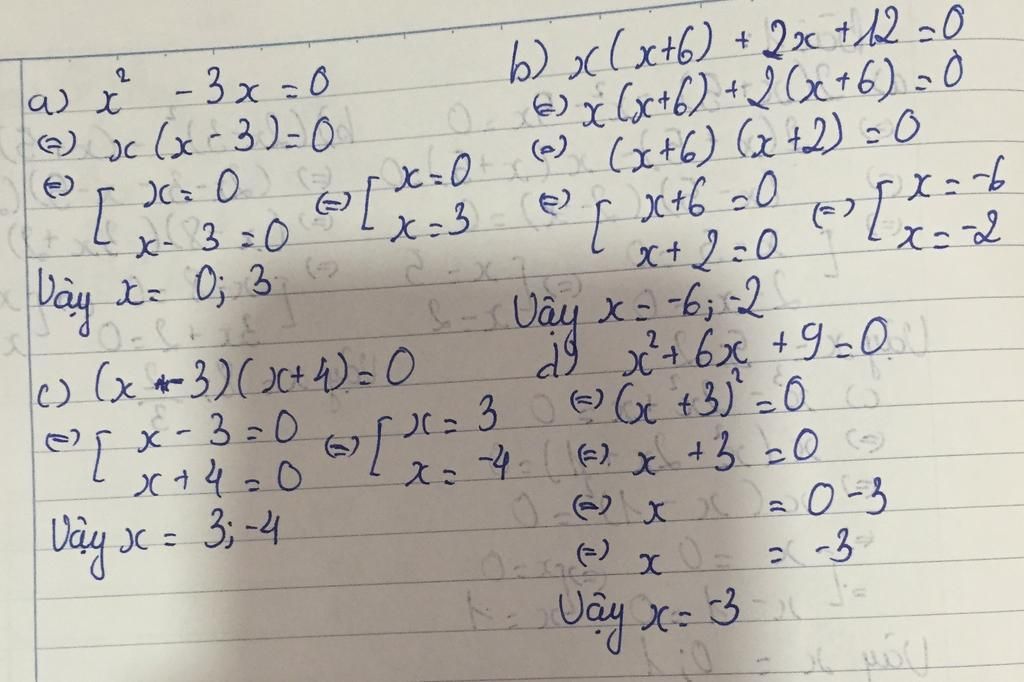 a) x² - 3x = 0
⇔ x(x - 3) = 0
⇔ [ x = 0 ⇔ [ x = 0
x - 3 = 0 x = 3
Vậy x = 0; 3
b) x(x+6) + 2x + 12 = 0
⇔ x(x+6) + 2(x+6) = 0
⇔ (x+6)(x+2) = 0
⇔ [ x+6 = 0 ⇔ [ x = -6
x + 2 = 0 x = -2
Vậy x = -6; -2
c) (x - 3)(x+4) = 0
⇔ [ x - 3 = 0 ⇔ [ x = 3
x + 4 = 0 x = -4
Vậy x = 3; -4
d) x² + 6x + 9 = 0
⇔ (x + 3)² = 0
⇔ x + 3 = 0
⇔ x = 0 - 3
⇔ x = -3
Vậy x = -3